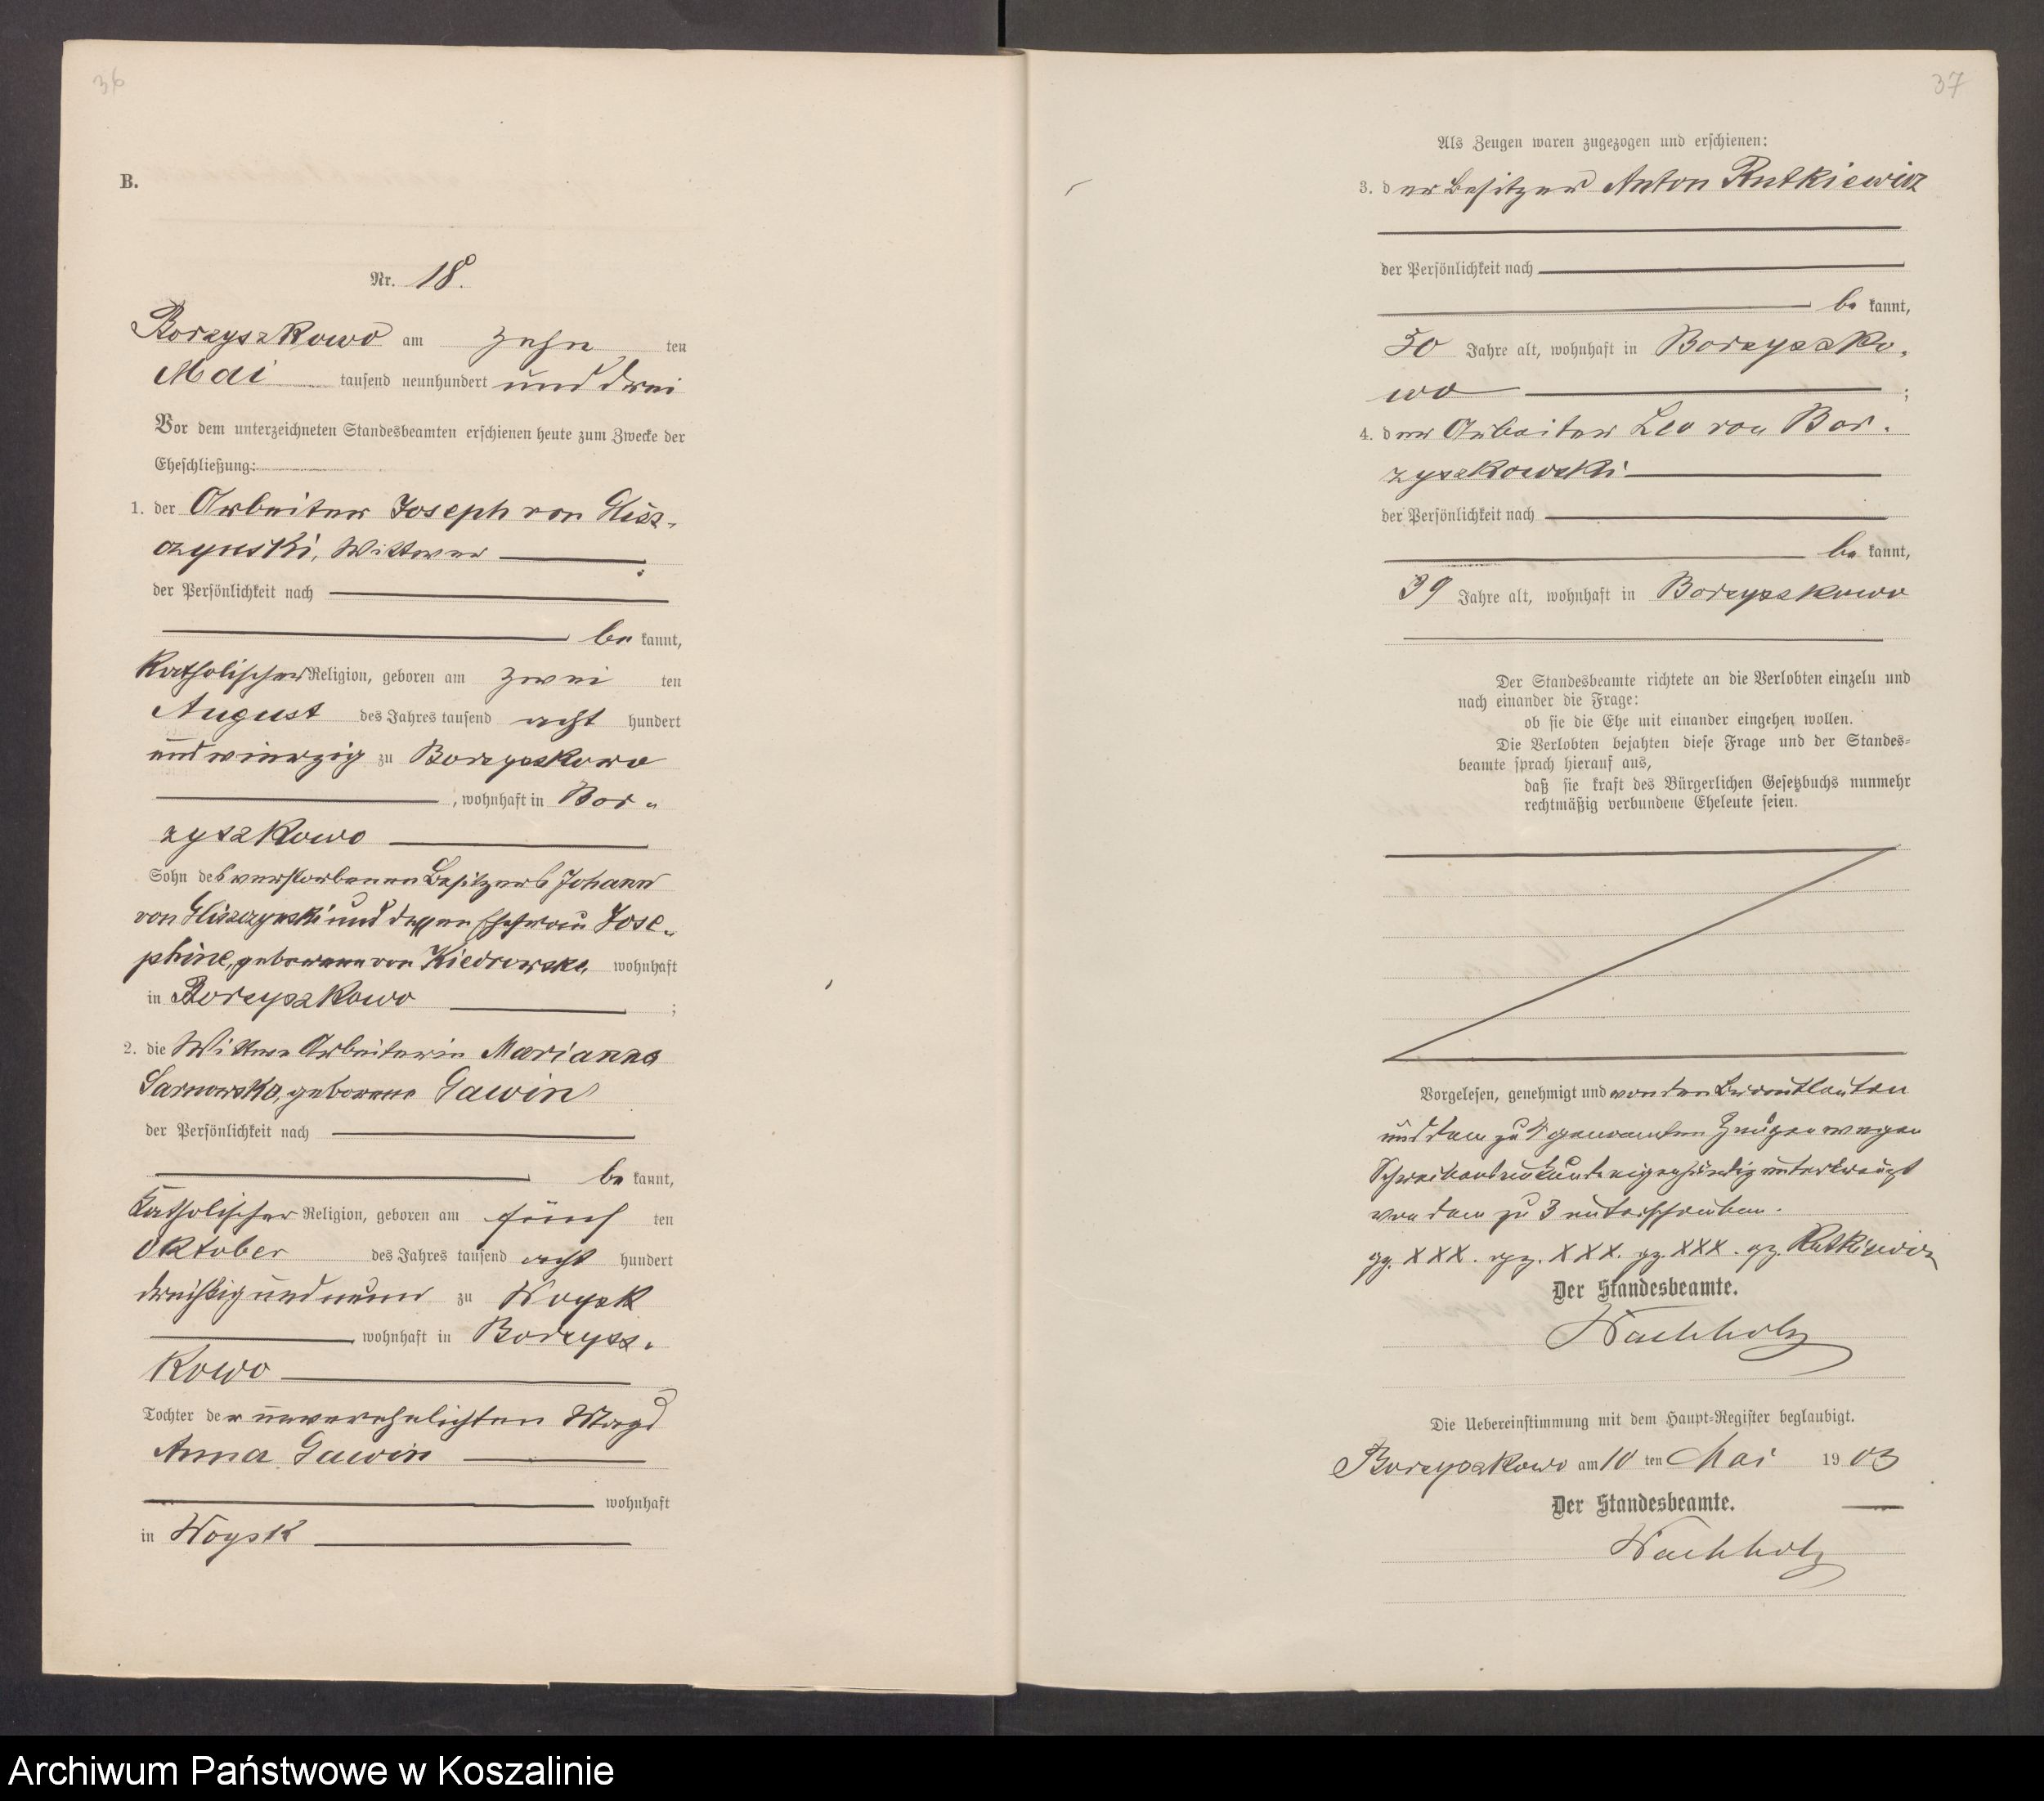 36
B.
Nr. 18.
Borzyszkowo am zehn ten
Mai tausend neunhundert und drei
Vor dem unterzeichneten Standesbeamten erschienen heute zum Zwecke der
Eheschließung:
1. der Arbeiter Joseph von Glisz-
czynski, Wittwer
der Persönlichkeit nach
be kannt,
katholischer Religion, geboren am zwei ten
August des Jahres tausend acht hundert
und vierzig zu Borzyszkowo
, wohnhaft in Bor-
zyszkowo
Sohn des verstorbenen Besitzers Johann
von Gliszczynski und dessen Ehefrau Jose-
phine, geborene von Kiedrowska wohnhaft
in Borzyszkowo ;
2. die Wittwe Arbeiterin Marianna
Sarnowska, geborene Gawin
der Persönlichkeit nach
be kannt,
katholischer Religion, geboren am fünf ten
Oktober des Jahres tausend acht hundert
dreißig und neun zu Woysk
wohnhaft in Borzysz-
kowo
Tochter der unverehelichten Magd
Anna Gawin
wohnhaft
in Woysk
37
Als Zeugen waren zugezogen und erschienen:
3. der Besitzer Anton Rutkiewicz
der Persönlichkeit nach
be kannt,
50 Jahre alt, wohnhaft in Borzyszko-
wo ;
4. der Arbeiter Leo von Bor-
zyszkowski
der Persönlichkeit nach
be kannt,
39 Jahre alt, wohnhaft in Borzyszkowo
Der Standesbeamte richtete an die Verlobten einzeln und
nach einander die Frage:
ob sie die Ehe mit einander eingehen wollen.
Die Verlobten bejahten diese Frage und der Standes-
beamte sprach hierauf aus,
daß sie kraft des Bürgerlichen Gesetzbuchs nunmehr
rechtmäßig verbundene Eheleute seien.
Vorgelesen, genehmigt und von den Brautleuten
und dem zu 4 genannten Zeugen wegen
Schreibensunkunde eigenhändig unterkreuzt
von dem zu 3 unterschrieben.
gz. XXX. gz. XXX. gz. XXX. gz. Rutkiewicz
Der Standesbeamte.
Wachholz
Die Uebereinstimmung mit dem Haupt-Register beglaubigt.
Borzyszkowo am 10 ten Mai 1903
Der Standesbeamte.
Wachholz
Archiwum Państwowe w Koszalinie